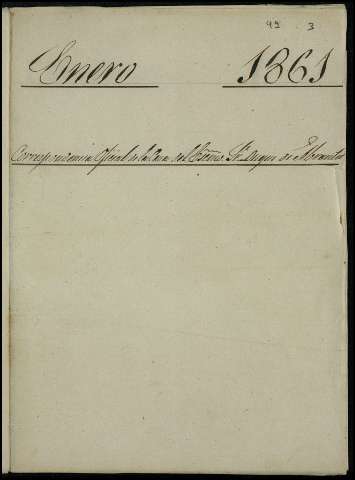 49 3
Enero 1861
Correspondencia Oficial de la Casa del Exmo. Sr. Duque de Abrantes